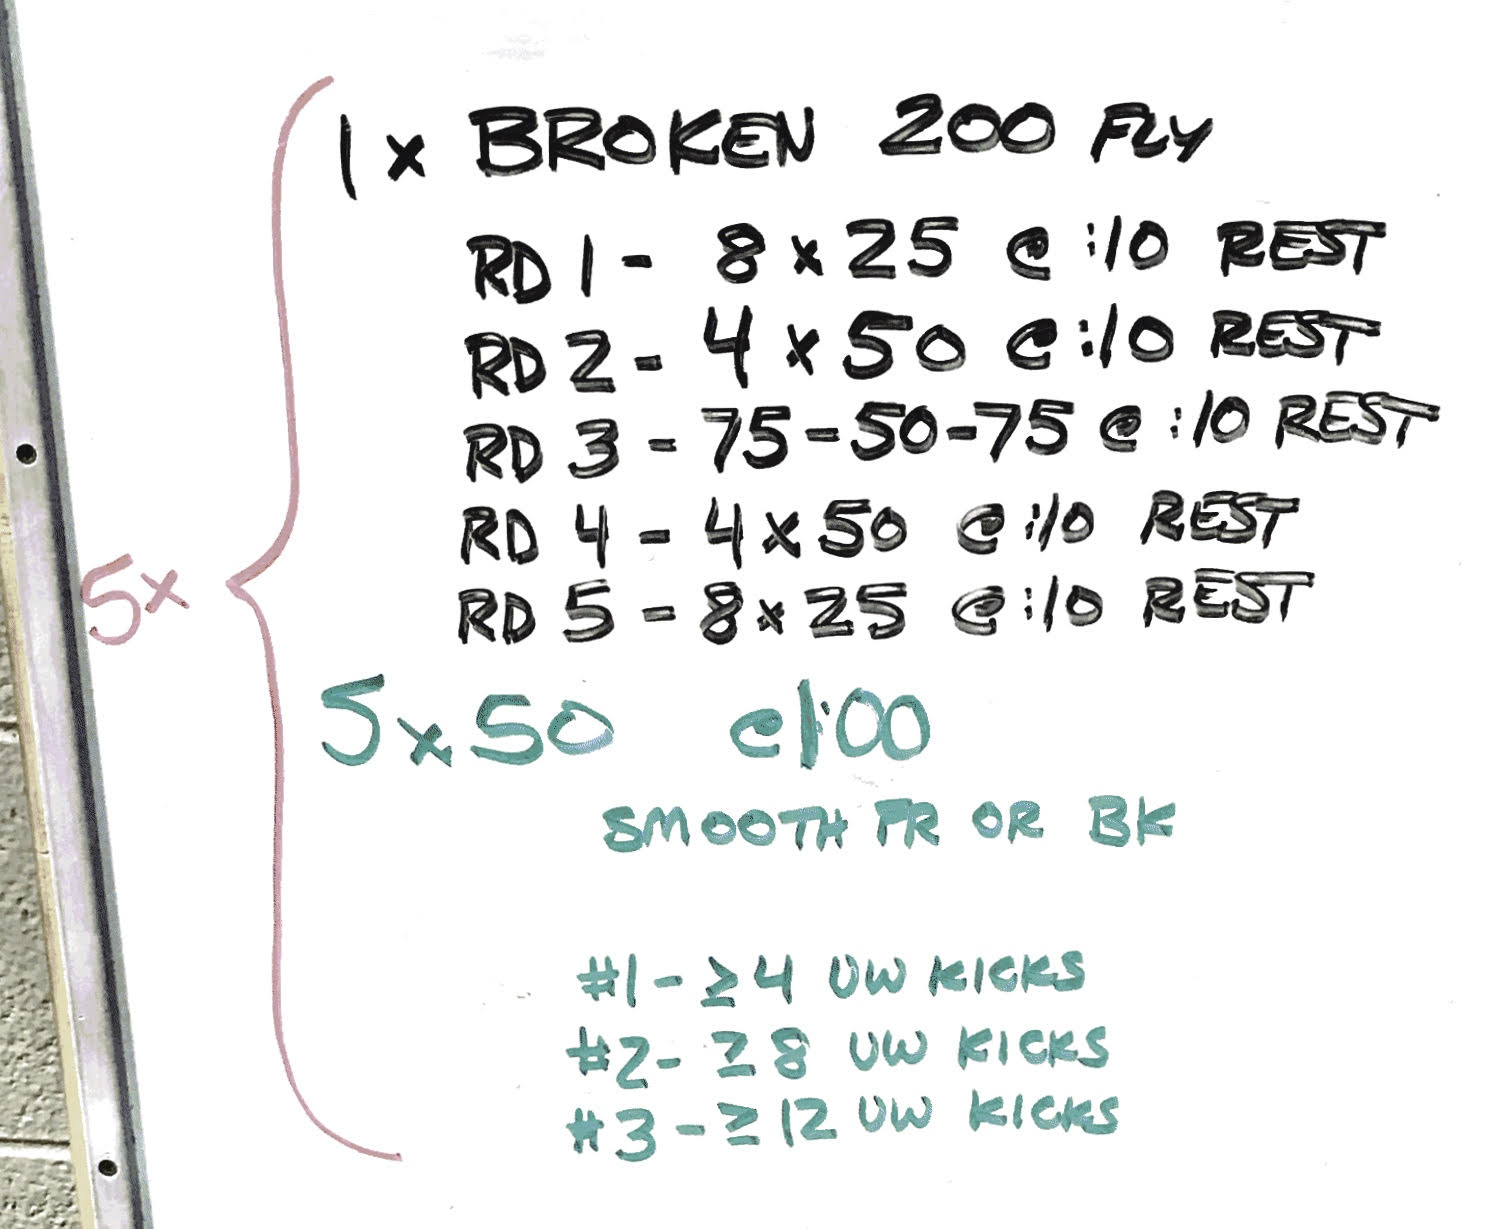 1 x BROKEN 200 FLY
RD 1 - 8 x 25 @ :10 REST
RD 2 - 4 x 50 @ :10 REST
RD 3 - 75-50-75 @ :10 REST
RD 4 - 4 x 50 @ :10 REST
5x
RD 5 - 8 x 25 @ :10 REST
5 x 50 @ 1:00
SMOOTH FR OR BK
#1 - ≥4 UW KICKS
#2 - ≥8 UW KICKS
#3 - ≥12 UW KICKS